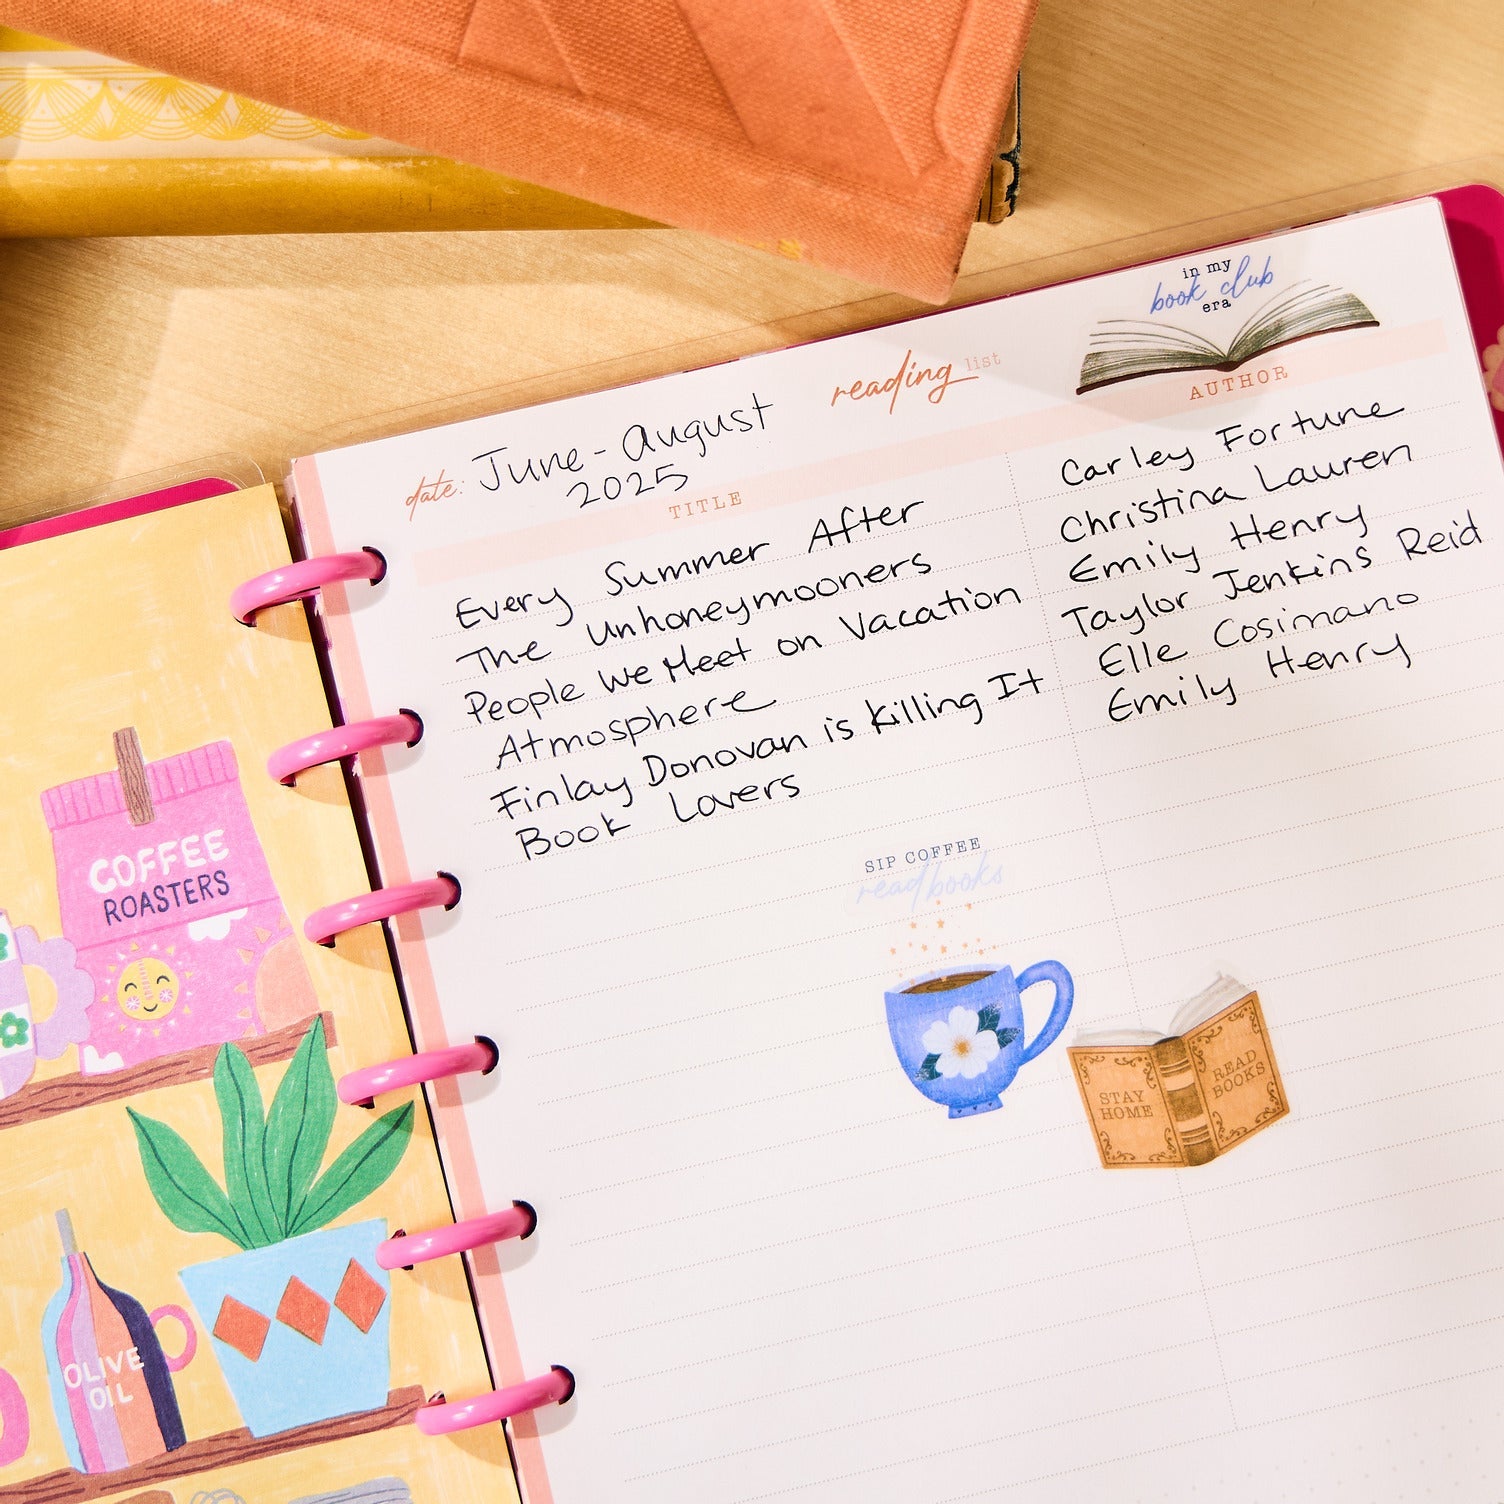 in my
book club
era
reading list
date: June - August
2025
TITLE
AUTHOR
Every Summer After Carley Fortune
The Unhoneymooners Christina Lauren
People We Meet on Vacation Emily Henry
Atmosphere Taylor Jenkins Reid
Finlay Donovan is Killing It Elle Cosimano
Book Lovers Emily Henry
SIP COFFEE
read books
STAY
HOME
READ
BOOKS
COFFEE
ROASTERS
OLIVE
OIL